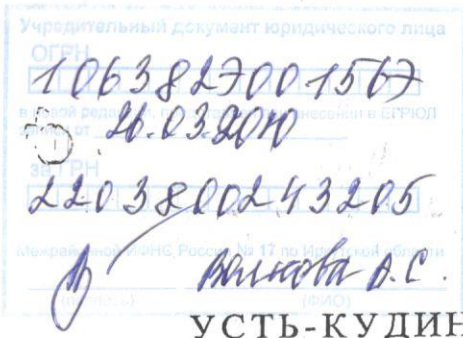 Учредительный документ юридического лица
ОГРН
1063827001567
в новой редакции, представлен при внесении в ЕГРЮЛ
записи от 26.03.2020
за ГРН
2203800243205
Межрайонной ИФНС России № 17 по Иркутской области
Волкова А.С.
(подпись) (ФИО)
УСТЬ-КУДИН